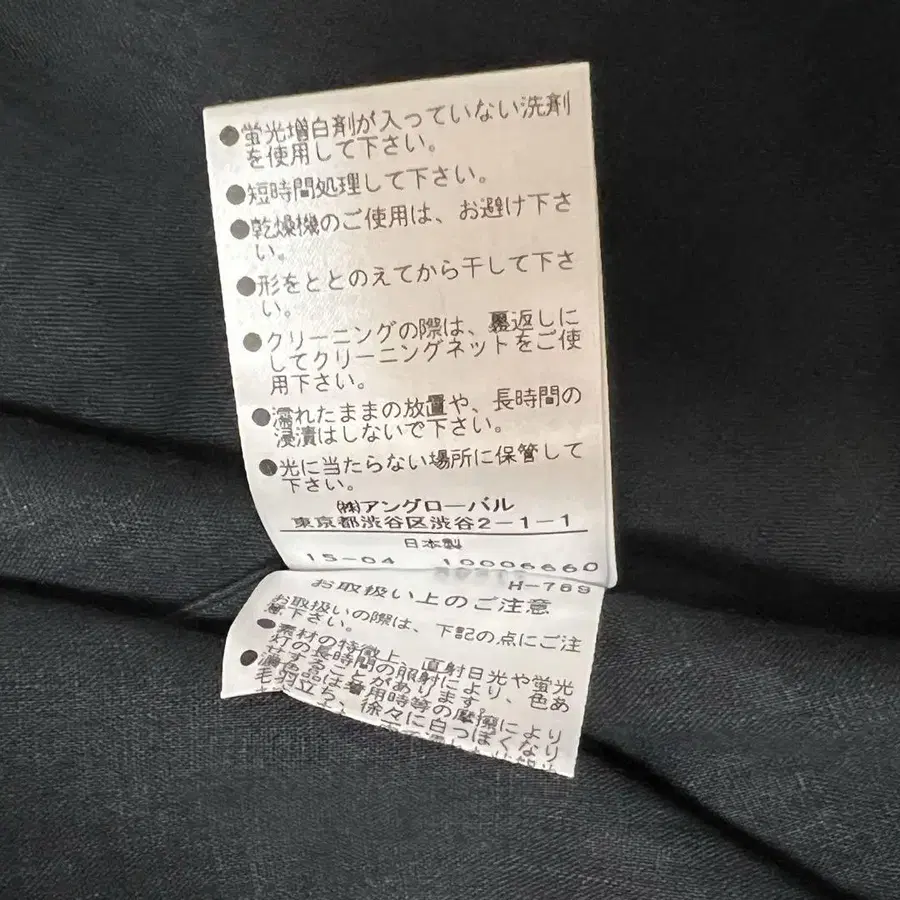 ●蛍光増白剤が入っていない洗剤
を使用して下さい。
●短時間処理して下さい。
●乾燥機のご使用は、お避け下さ
い。
●形をととのえてから干して下さ
い。
●クリーニングの際は、裏返しに
してクリーニングネットをご使
用下さい。
●濡れたままの放置や、長時間の
浸漬はしないで下さい。
●光に当たらない場所に保管して
下さい。
㈱アングローバル
東京都渋谷区渋谷2-1-1
日本製
15-04 10006660
H-789
お取扱い上のご注意
お取扱いの際は、下記の点にご注
意下さい。
●素材の特徴上、直射日光や蛍光
灯の長時間の照射により、色あ
せすることがあります。
●濃色品は着用時等の摩擦により
毛羽立ち、徐々に白っぽくなり